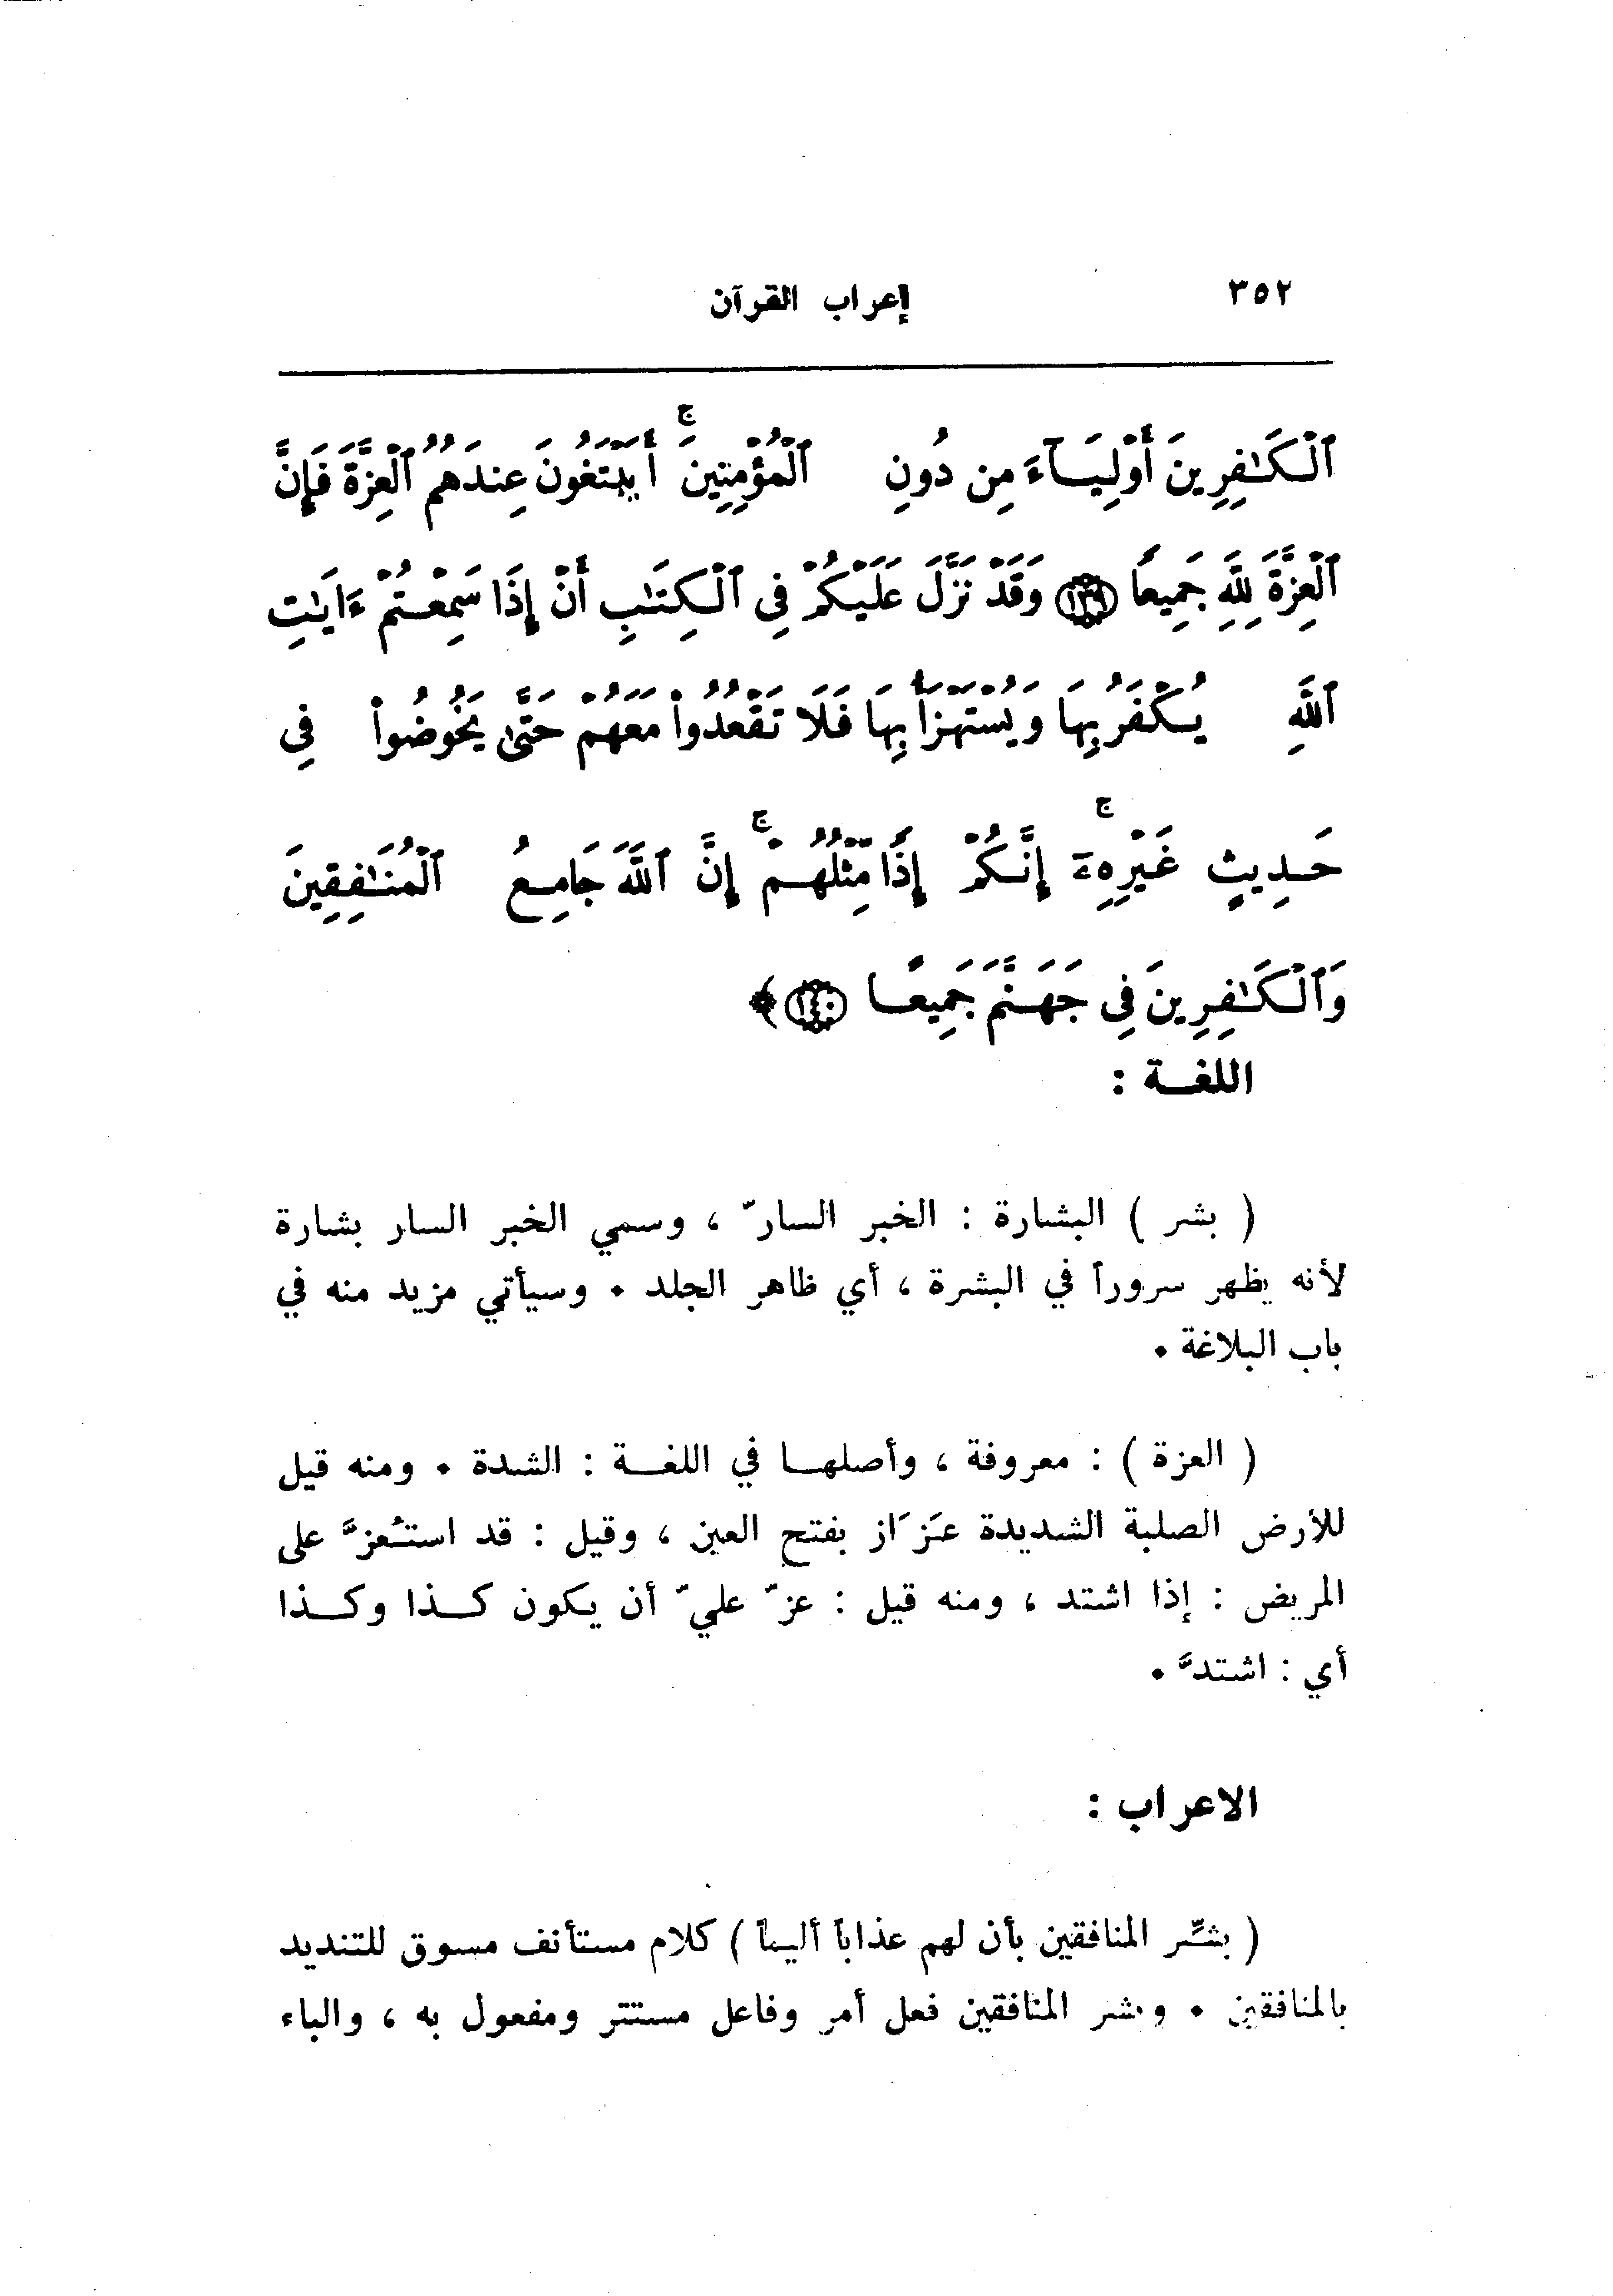 ٣٥٢ إعراب القرآن
ٱلْكَـٰفِرِينَ أَوْلِيَآءَ مِن دُونِ ٱلْمُؤْمِنِينَ ۚ أَيَبْتَغُونَ عِندَهُمُ ٱلْعِزَّةَ فَإِنَّ
ٱلْعِزَّةَ لِلَّهِ جَمِيعًا ﴿١٣٩﴾ وَقَدْ نَزَّلَ عَلَيْكُمْ فِى ٱلْكِتَـٰبِ أَنْ إِذَا سَمِعْتُمْ ءَايَـٰتِ
ٱللَّهِ يُكْفَرُ بِهَا وَيُسْتَهْزَأُ بِهَا فَلَا تَقْعُدُوا۟ مَعَهُمْ حَتَّىٰ يَخُوضُوا۟ فِى
حَدِيثٍ غَيْرِهِۦٓ ۚ إِنَّكُمْ إِذًا مِّثْلُهُمْ ۚ إِنَّ ٱللَّهَ جَامِعُ ٱلْمُنَـٰفِقِينَ
وَٱلْكَـٰفِرِينَ فِى جَهَنَّمَ جَمِيعًا ﴿١٤٠﴾ ﴾
اللغـة :
( بشر ) البشارة : الخبر السارّ ، وسمي الخبر السار بشارة
لأنه يظهر سروراً في البشرة ، أي ظاهر الجلد ٠ وسيأتي مزيد منه في
باب البلاغة ٠
( العزة ) : معروفة ، وأصلهـا في اللغـة : الشدة ٠ ومنه قيل
للأرض الصلبة الشديدة عَزَاز بفتح العين ، وقيل : قد استُعزَّ على
المريض : إذا اشتد ، ومنه قيل : عزّ عليّ أن يكون كـذا وكـذا
أي : اشتدَّ ٠
الاعراب :
( بشِّر المنافقين بأن لهم عذاباً أليماً ) كلام مستأنف مسوق للتنديد
بالمنافقين ٠ وبشر المنافقين فعل أمر وفاعل مستتر ومفعول به ، والباء